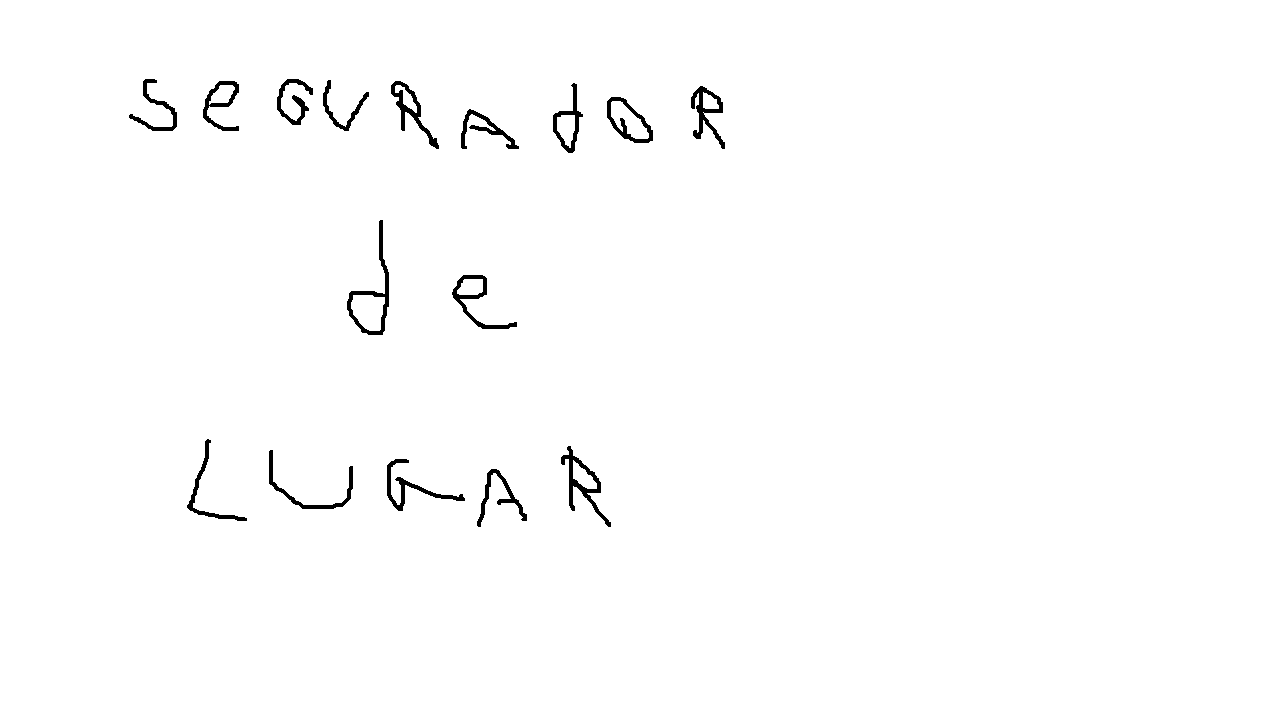 SeGURAdOR
de
LUGAR